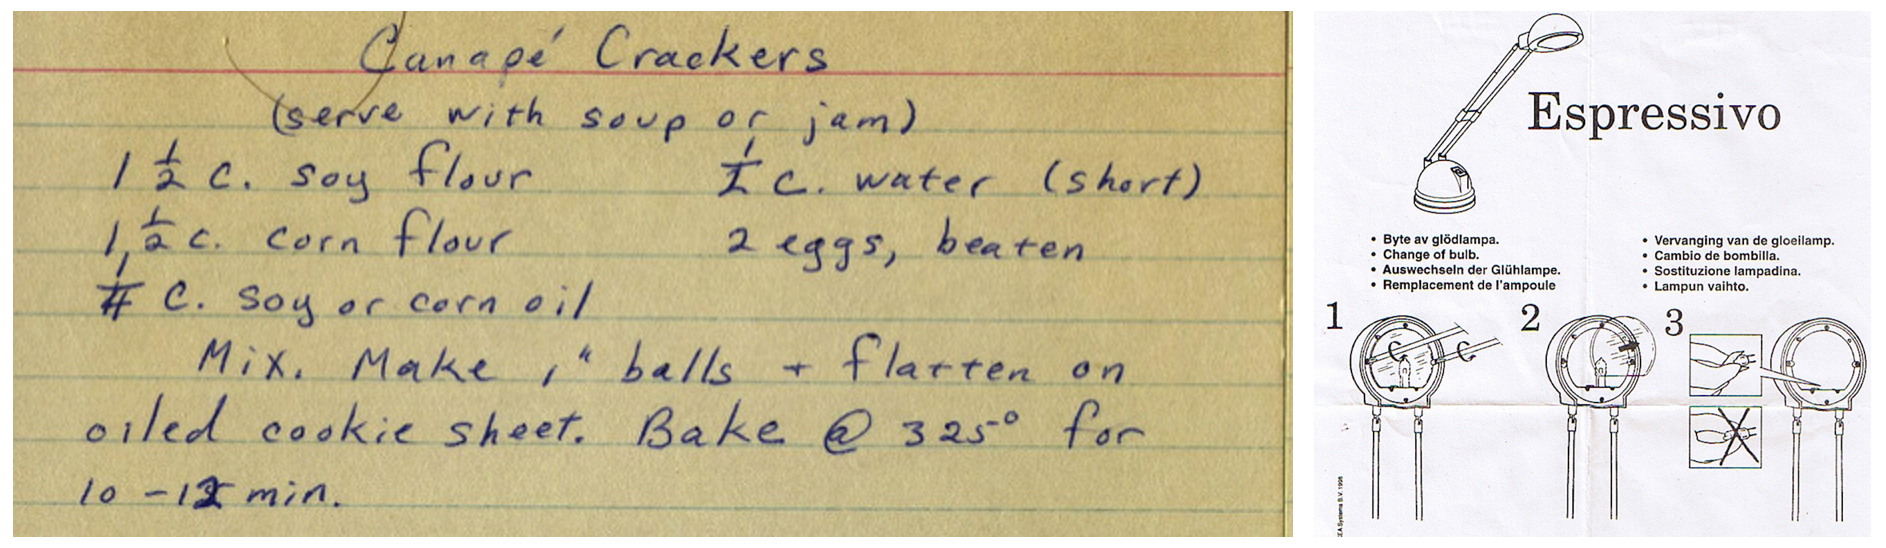 Canapé Crackers
(serve with soup or jam)
1 1/2 c. soy flour
1 1/2 c. corn flour
1/4 c. soy or corn oil
c. water (short)
2 eggs, beaten
Mix. Make 1" balls + flatten on
oiled cookie sheet. Bake @ 325° for
10-12 min.
Espressivo
• Byte av glödlampa.
• Change of bulb.
• Auswechseln der Glühlampe.
• Remplacement de l'ampoule
• Vervanging van de gloeilamp.
• Cambio de bombilla.
• Sostituzione lampadina.
• Lampun vaihto.
1
2
3
EA Systems B.V. 1998